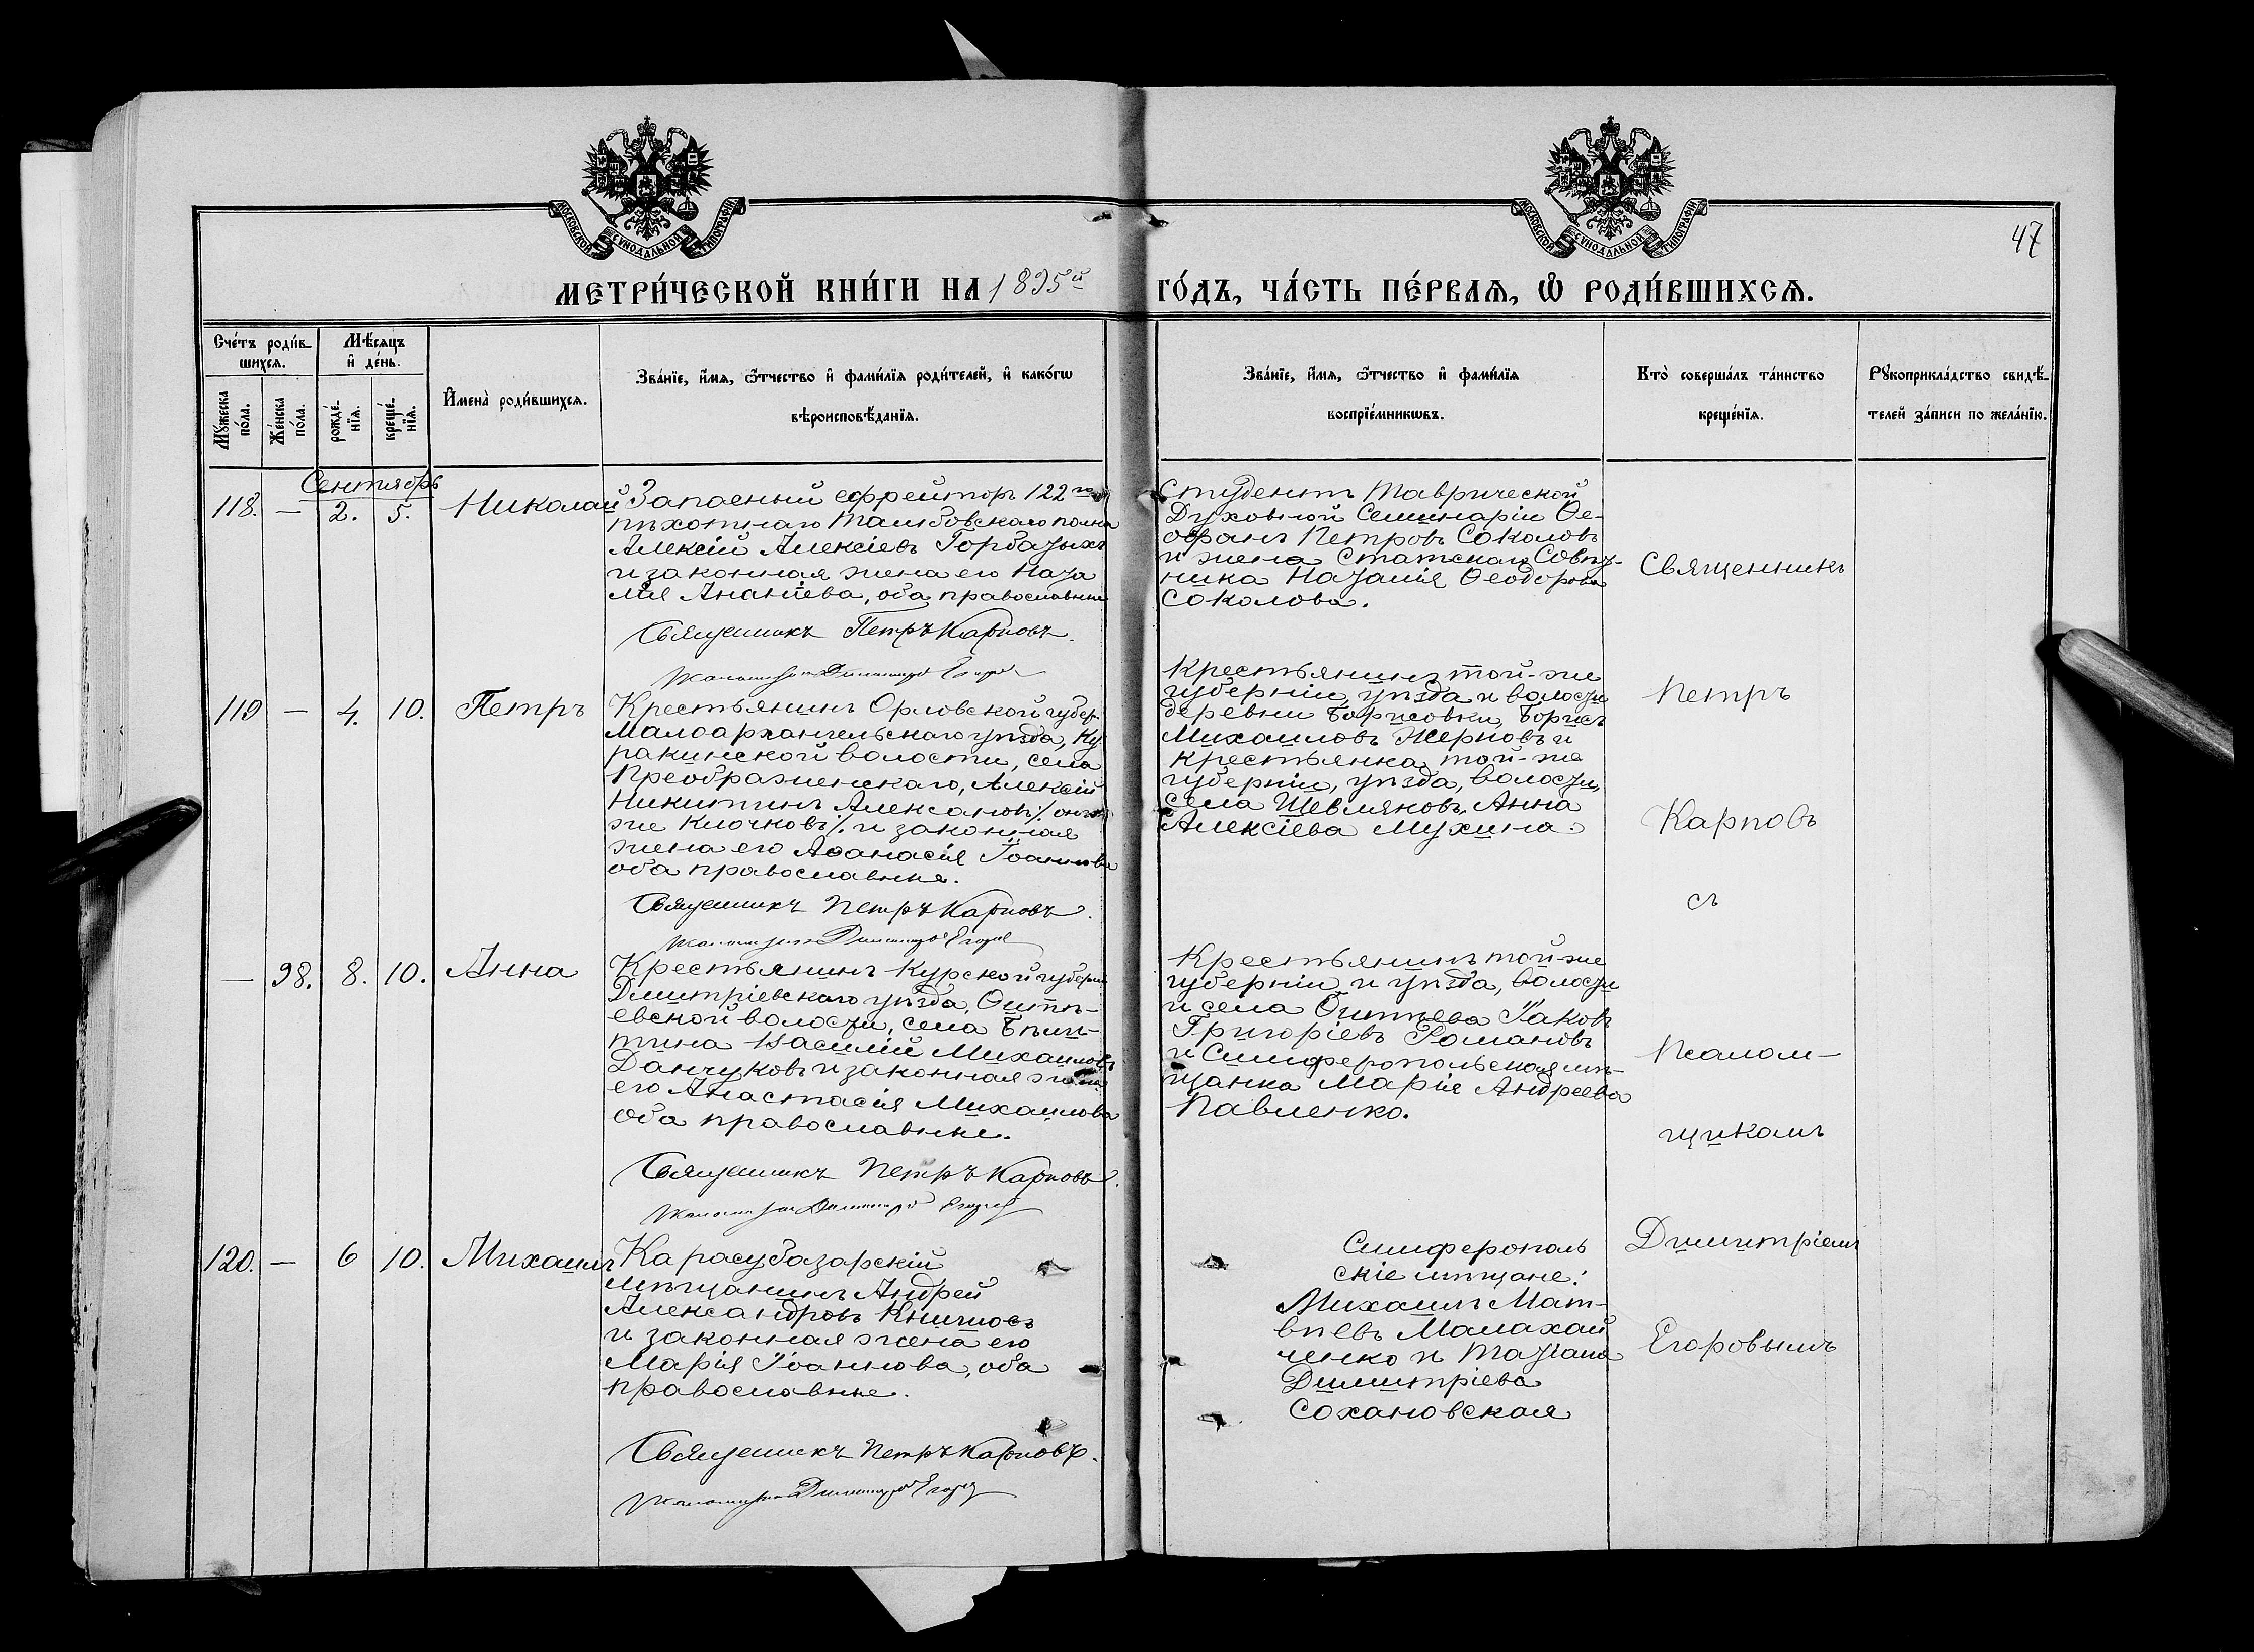 МОСКОВСКОЙ СѴНОДАЛЬНОЙ ТИПОГРАФІИ
МОСКОВСКОЙ СѴНОДАЛЬНОЙ ТИПОГРАФІИ
47
МЕТРИ́ЧЕСКОЙ КНИ́ГИ НА 1895й ГО́ДЪ, ЧА́СТЬ ПЕ́РВАѦ, Ѡ РОДИ́ВШИХСѦ.
Сче́тъ роди́в-
шихсѧ.
Мѣ́сѧцъ
и де́нь.
Мꙋ́жеска по́ла.
Же́нска по́ла.
рожде́-
нїѧ.
креще́-
нїѧ.
Имена̀ роди́вшихсѧ.
Зва́нїе, и́мѧ, ѻ҆́тчество и фами́лїѧ роди́телей, и како́гѡ
вѣроисповѣ́данїѧ.
Зва́нїе, и́мѧ, ѻ҆́тчество и фами́лїѧ
воспрїе́мникѡвъ.
Кто̀ соверша́лъ та́инство
креще́нїѧ.
Рꙋкоприкла́дство свидѣ́-
телей за́писи по жела́нїю.
Сентябрь
118. — 2. 5. Николай
Запасный ефрейторъ 122го
пѣхотнаго Тамбовскаго полка
Алексій Алексіевъ Горбатыхъ
и законная жена его Ната
лія Ананіева, оба православные
Священникъ Петръ Карповъ.
Псаломщикъ Димитрій Егоровъ
Студентъ Таврической
Духовной Семинаріи Ѳе-
офанъ Петровъ Соколовъ
и жена Статскаго Совѣт-
ника Наталія Ѳеодорова
Соколова.
119 — 4. 10. Петръ
Крестьянинъ Орловской губер.
Малоархангельскаго уѣзда, Ку
ракинской волости, села
Преображенскаго, Алексій
Никитинъ Алексановъ /. онъ
же Клочковъ /. и законная
жена его Аѳанасія Іоаннова
оба православные.
Священникъ Петръ Карповъ.
Псаломщикъ Димитрій Егоровъ
Крестьянинъ той-же
губерніи, уѣзда и волости
деревни Борисовки, Борисъ
Михаиловъ Жерновъ и
крестьянка той-же
губерніи, уѣзда, волости,
села Щевляковъ, Анна
Алексіева Мухина.
— 98. 8. 10. Анна
Крестьянинъ Курской губерніи
Димитріевскаго уѣзда,
евской волости, села
Василій Михаиловъ
Данчуковъ и законная жена
его Анастасія Михаилова
оба православные.
Священникъ Петръ Карповъ.
Псаломщикъ Димитрій Егоровъ
Крестьянинъ той-же
губерніи и уѣзда, волости
и села Іаковъ
Григоріевъ Романовъ
и Симферопольская мѣ-
щанка Марія Андреева
Павленко.
120. — 6 10. Михаилъ
Карасубазарскій
мѣщанинъ Андрей
Александровъ
и законная жена его
Марія Іоаннова, оба
православные.
Священникъ Петръ Карповъ.
Псаломщикъ Димитрій Егоровъ
Симферополь
скіе мѣщане:
Михаилъ Мат-
вѣевъ Малахай
ченко и Татіана
Димитріева
Сохановская
Священникъ
Петръ
Карповъ
съ
Псалом-
щикомъ
Димитріемъ
Егоровымъ